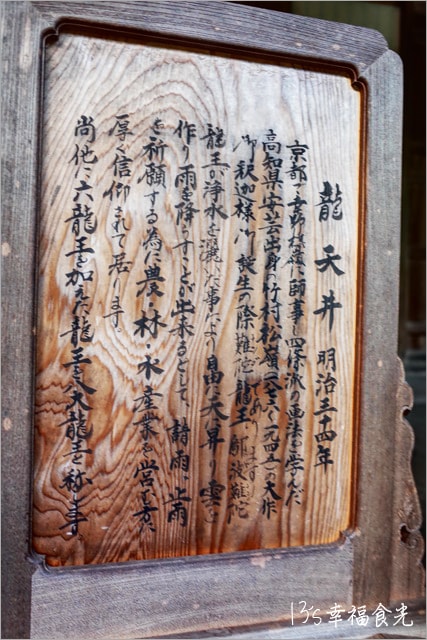 龍天井 明治三十四年
京都で幸野楳嶺に師事し四條派の画法を学んだ
高知県安芸出身の竹村松嶺の大作
であります
御釈迦様御誕生の際難陀龍王 波難陀
龍王が浄水を灑いだ事により自由に天に昇り雲を
作り雨を降らすことが出来るとして、請雨、止雨
を祈願する為に農・林・水産業を営む者に
厚く信仰されて居ります
尚他に六龍王を加えた龍王を八大龍王と称します
17's幸福食光